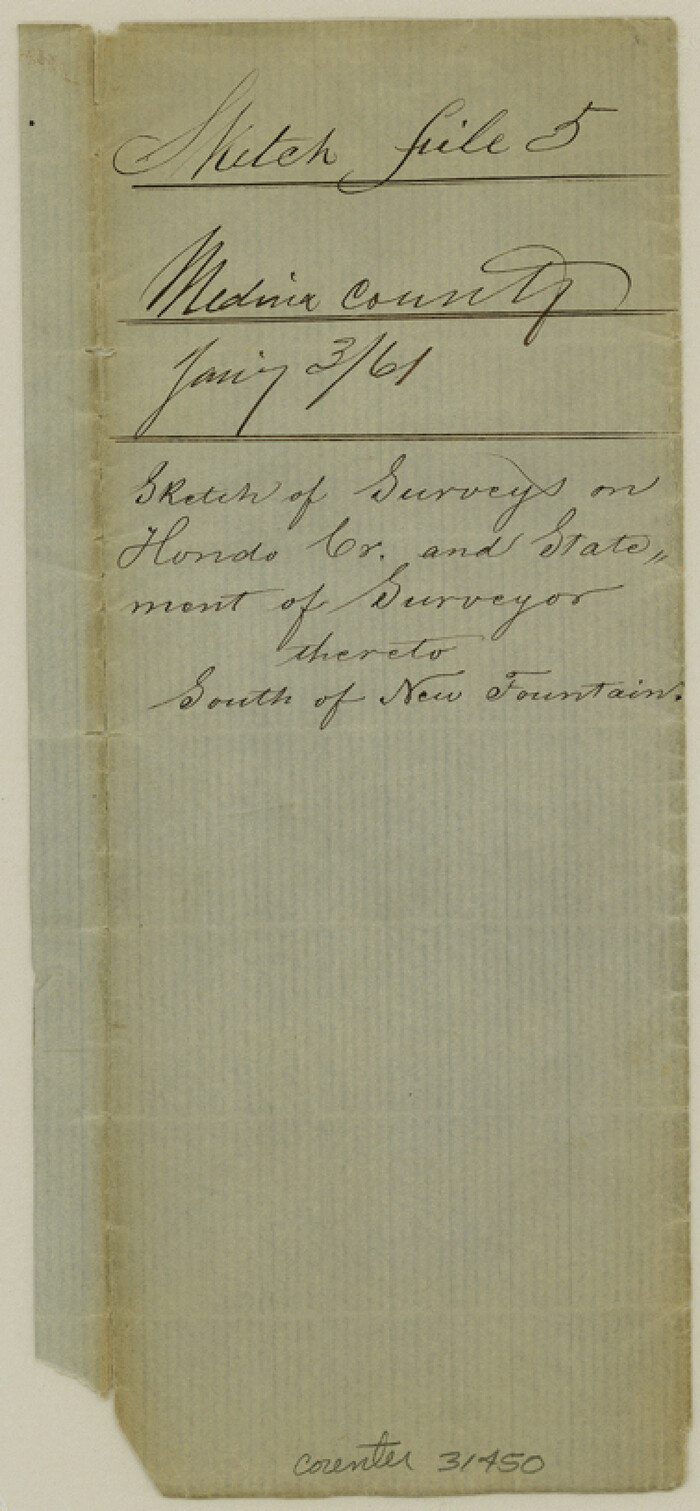 Sketch file 5
Medina County
Jan'y 3/61
Sketch of Surveys on
Hondo Cr. and State„
ment of Surveyor
thereto
South of New Fountain.
counter 31450